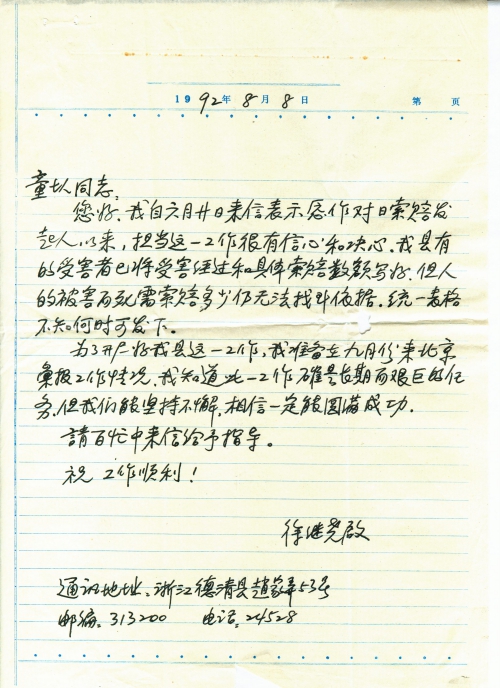 1992年8月8日 第 页
童增同志:
您好,我自六月廿日来信表示愿作对日索赔发
起人以来,担当这一工作很有信心和决心。我县有
的受害者已将受害经过和具体索赔数额写好,但人
的被害而死需索赔多少仍无法找到依据。统一表格
不知何时可发下。
为了开广好我县这一工作,我准备在九月份来北京
彙报工作情况。我知道此一工作确是长期而艰巨的任
务,但我们能坚持不懈,相信一定能圆满成功.
請百忙中来信给予指导。
祝 工作顺利!
徐继尧啟
通讯地址:浙江德清县趙家弄53号
邮编:313200 电话:24528